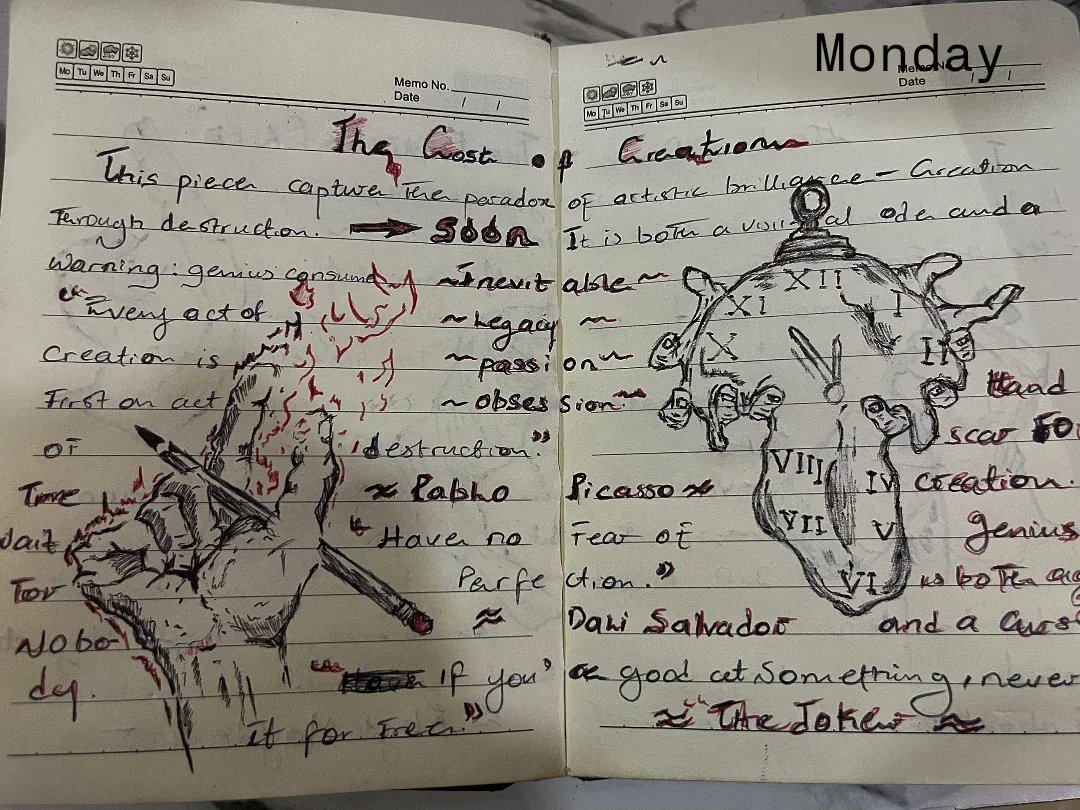 Monday
Mo Tu We Th Fr Sa Su
Memo No.
Date / /
Mo Tu We Th Fr Sa Su
Memo No.
Date / /
The Cost of Creation
This piece capture the paradox of artistic brilliance – Creation
Through destruction. → Soon It is both a visual ode and a
Warning: genius consumed ~Inevitable~
"Every act of ~Legacy~
Creation is ~passion~
First an act ~obsession~
of destruction."
~ Pablo Picasso ~
Time
Wait
For
Nobody.
"Have no Fear of
Perfection."
~ Dali Salvador
XII
XI I
X II
VIII IV
VII V
VI
Hand
scar FO
creation.
genius
is both a
and a Curs
If you" good at Something, never
it for Free."
~ "The Joker ~